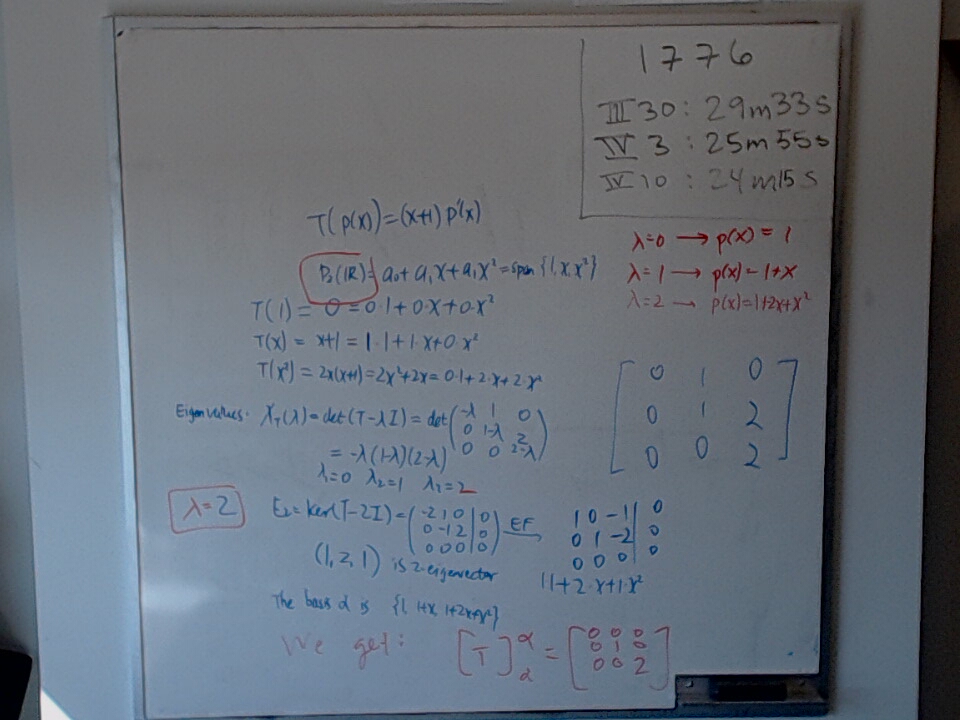 1776
III 30: 29m33s
IV 3: 25m55s
IV 10: 24m15s
T(p(x))=(x+1)p'(x)
P₂(ℝ)= a₀+a₁x+a₁x²=span{1,x,x²}
T(1)= 0=0·1+0·x+0·x²
T(x)= x+1=1·1+1·x+0·x²
T(x²)=2x(x+1)=2x²+2x=0·1+2·x+2·x²
λ=0 → p(x)=1
λ=1 → p(x)=1+x
λ=2 → p(x)=1+2x+x²
0 1 0
0 1 2
0 0 2
Eigenvalues: χ_T(λ)=det(T-λI)=det(-λ 1 0
0 1-λ 2
0 0 2-λ)
= -λ(1-λ)(2-λ)
λ=0 λ₂=1 λ₂=2
λ=2
E₂=ker(T-2I)=(-2 1 0 | 0
0 -1 2 | 0
0 0 0 | 0) EF →
1 0 -1 | 0
0 1 -2 | 0
0 0 0 | 0
(1,2,1) is 2-eigenvector
1·1+2·x+1·x²
The basis α is {1, 1+x, 1+2x+x²}
We get: [T]^α_α = [0 0 0
0 1 0
0 0 2]